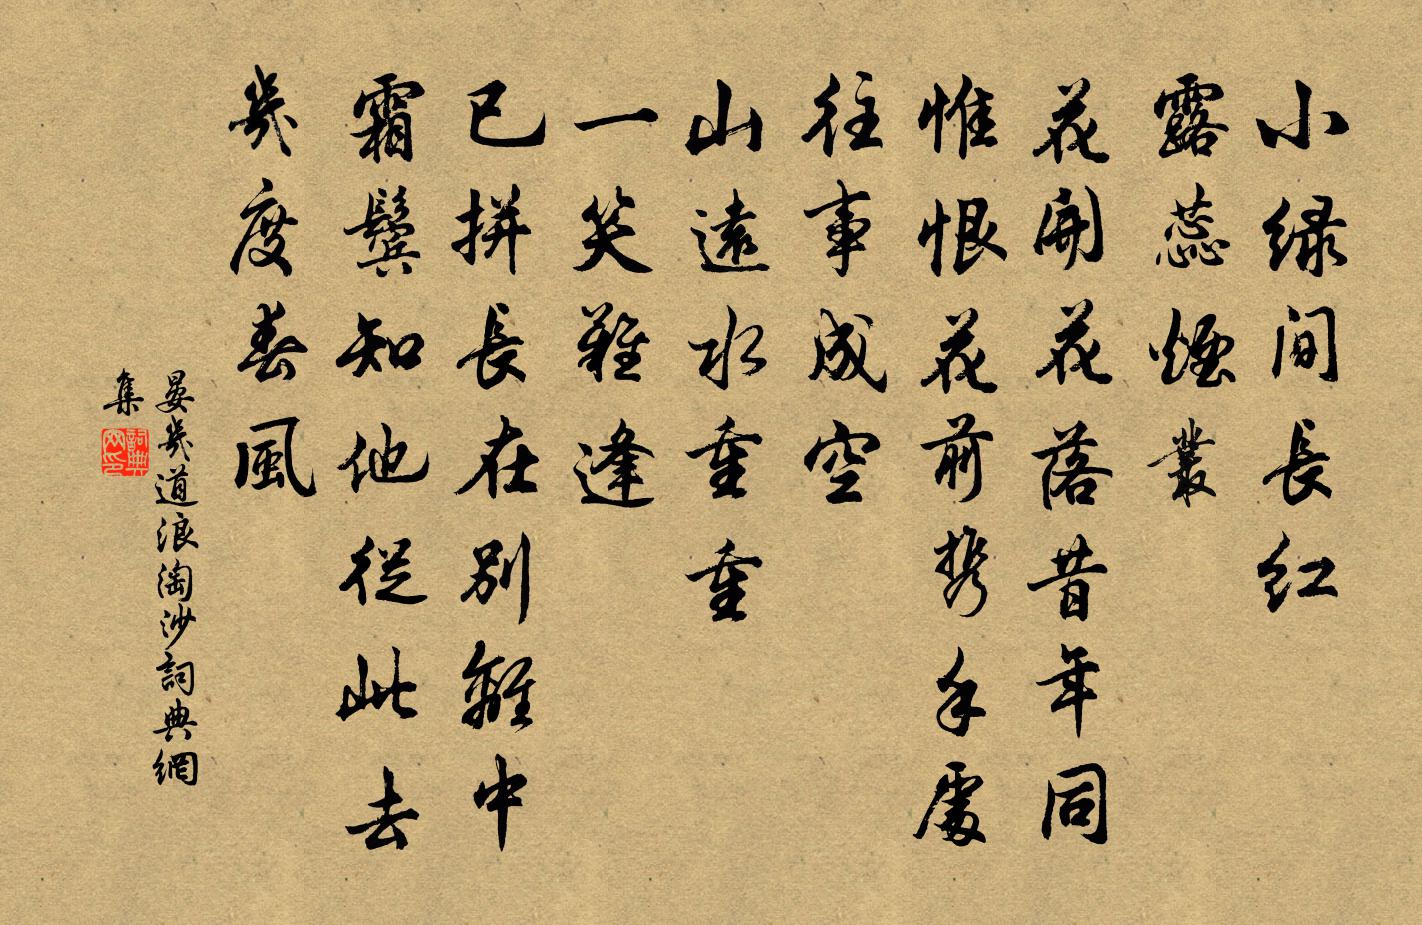 小绿间長红
露蕊煙叢
花開花落昔年同
惟恨花前携手處
往事成空
山遠水重重
一笑難逢
已拼長在別離中
霜鬢知他從此去
幾度春風
晏幾道浪淘沙詞典網
集
詞典網印